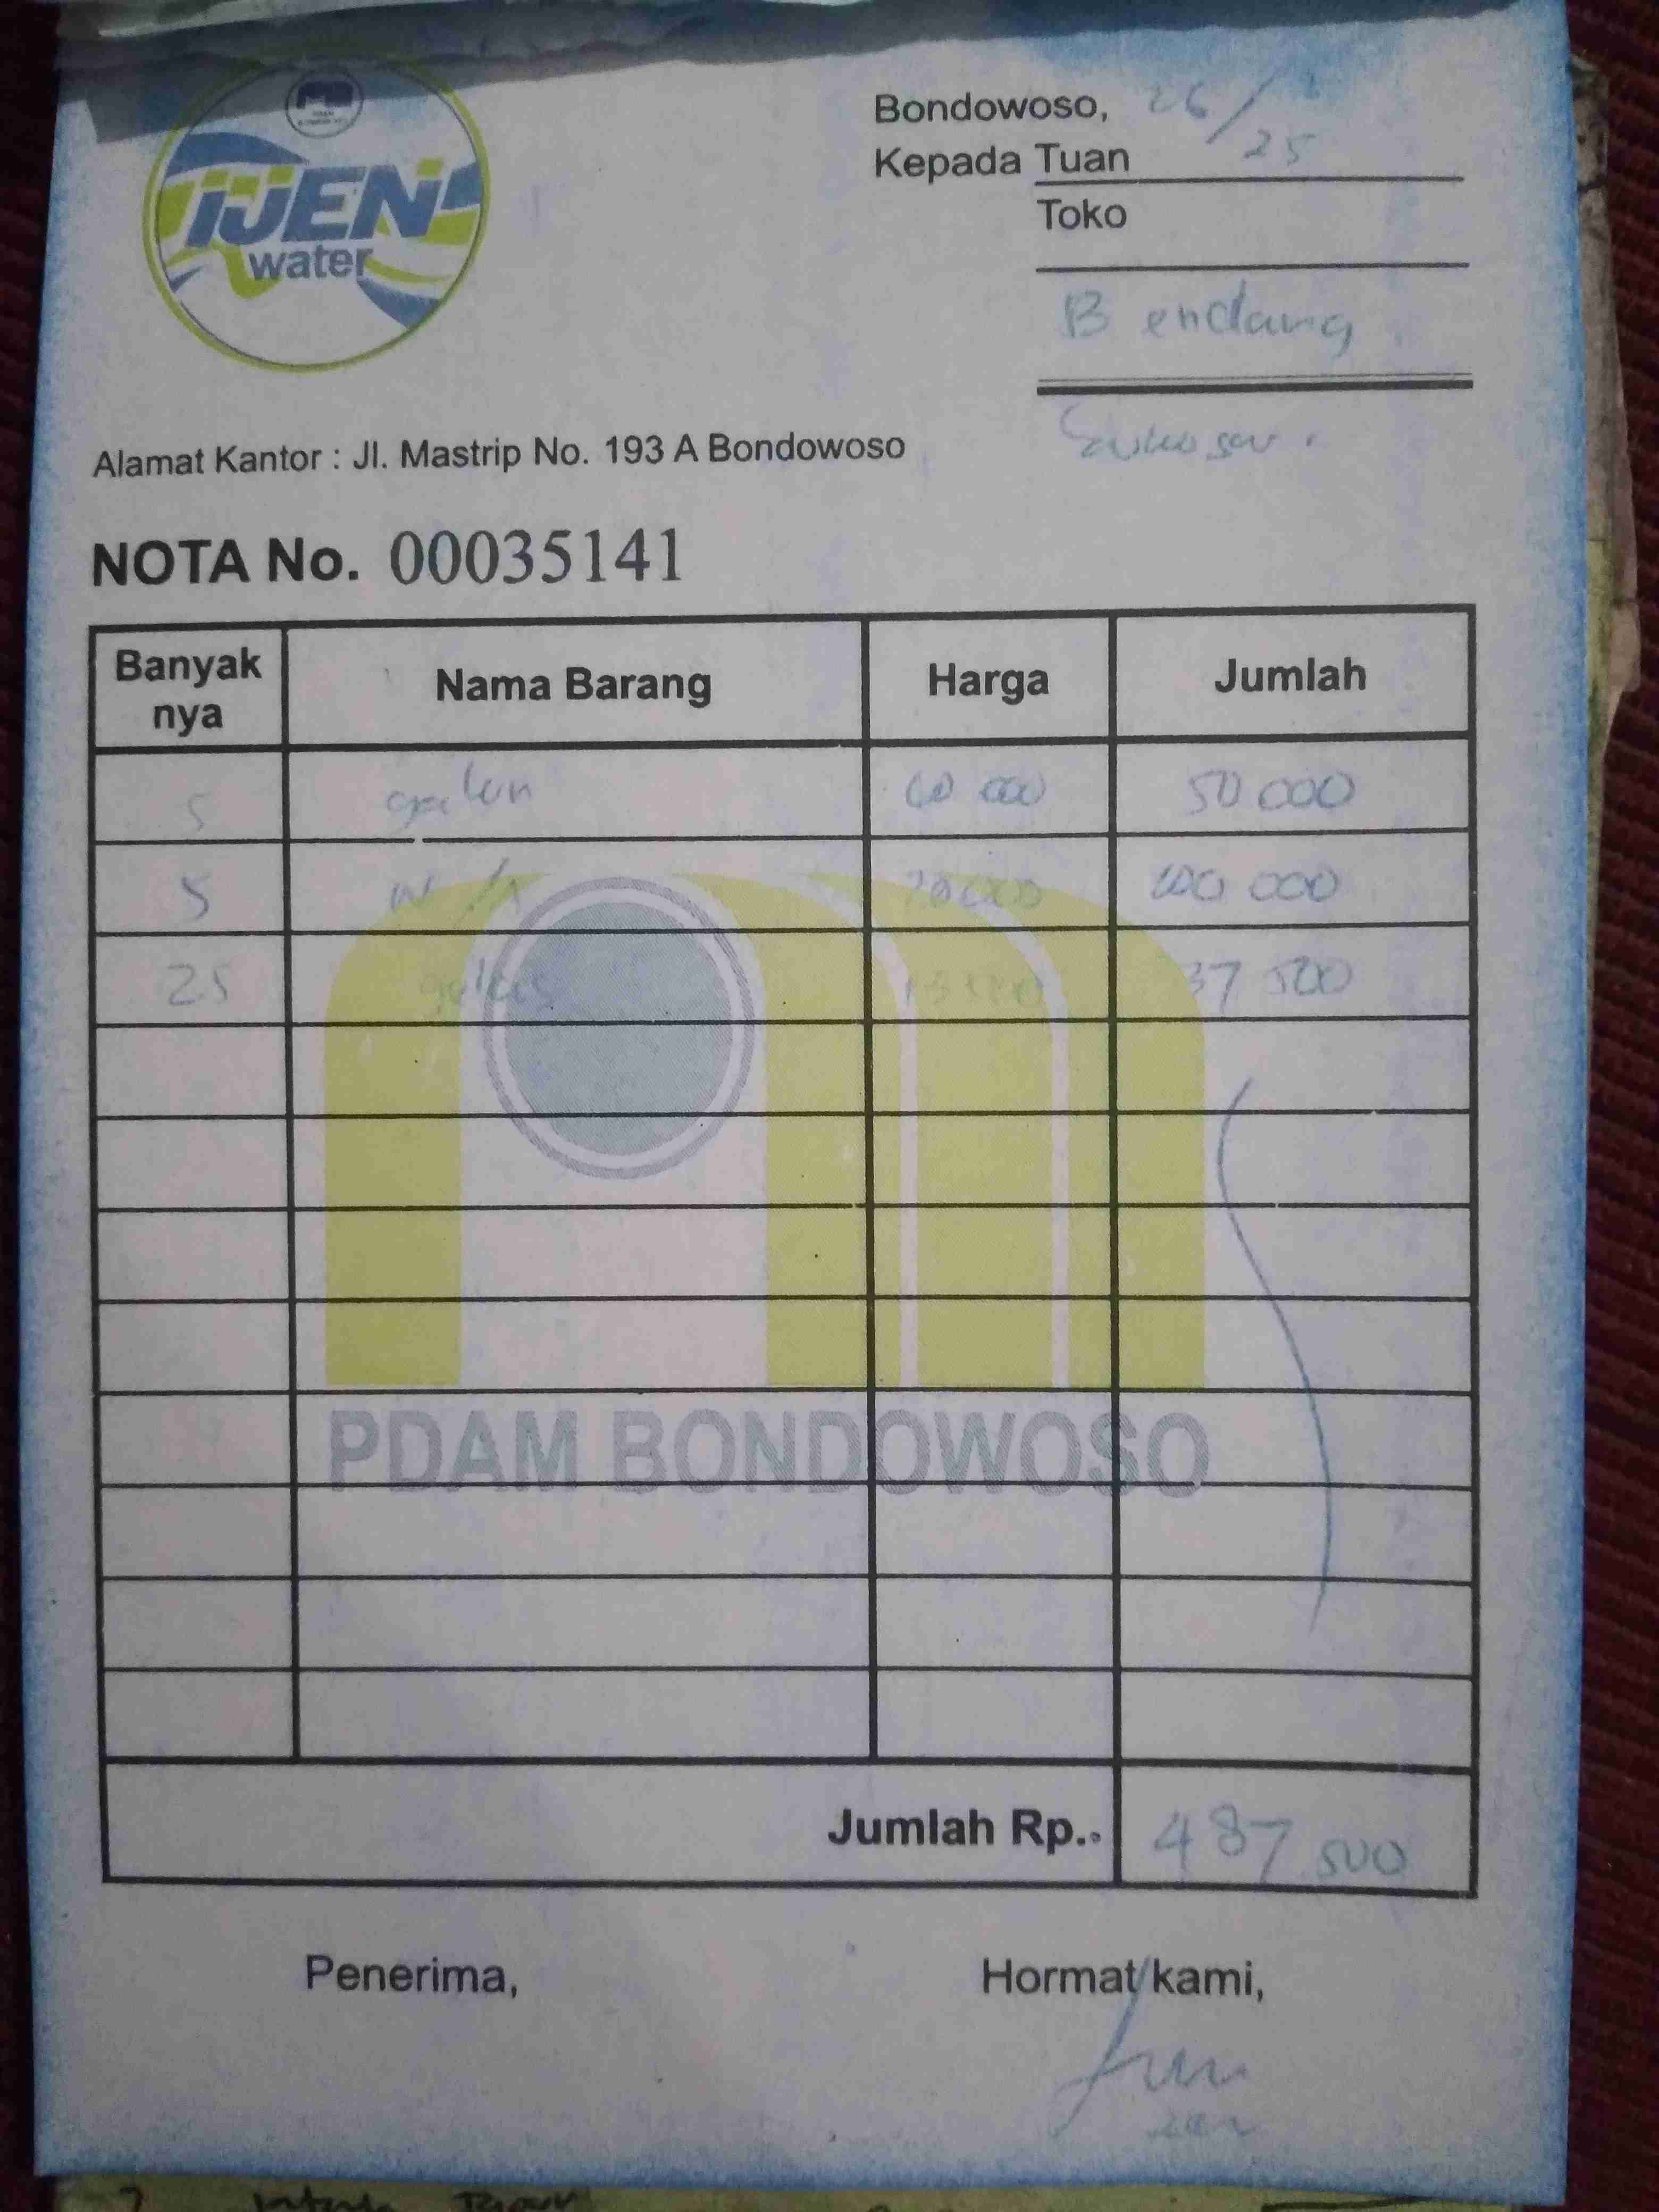 iJEN
water
Bondowoso, 26/
25
Kepada Tuan
Toko
B endang
Alamat Kantor : Jl. Mastrip No. 193 A Bondowoso
NOTA No. 00035141
Banyak nya Nama Barang Harga Jumlah
5 galon 10 000 50 000
5 20 000 100 000
25 gelas 37 500
PDAM BONDOWOSO
Jumlah Rp.. 487 500
Penerima, Hormat kami,